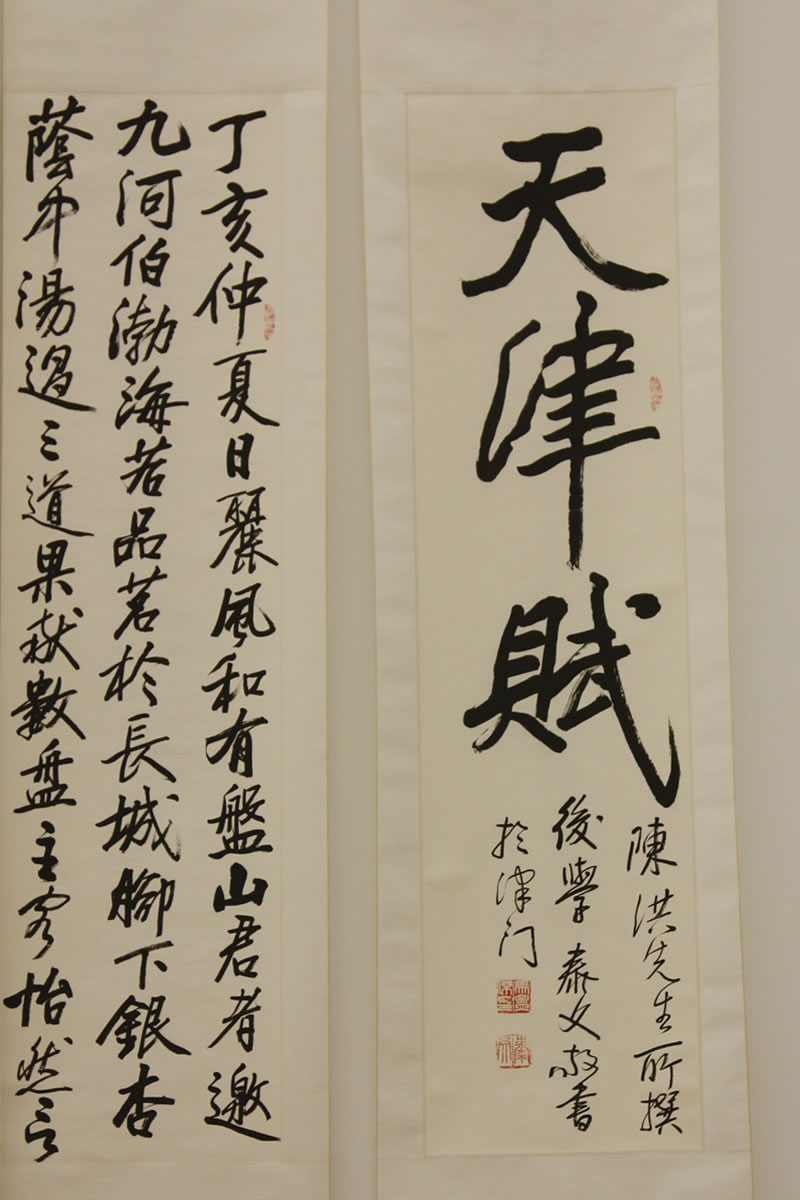 天津賦
陳洪先生所撰
後學泰文敬書
於津门
丁亥仲夏日麗風和有盤山君者邀
九河伯渤海若品茗於長城腳下銀杏
蔭中湯過三道果献數盘主客怡然言